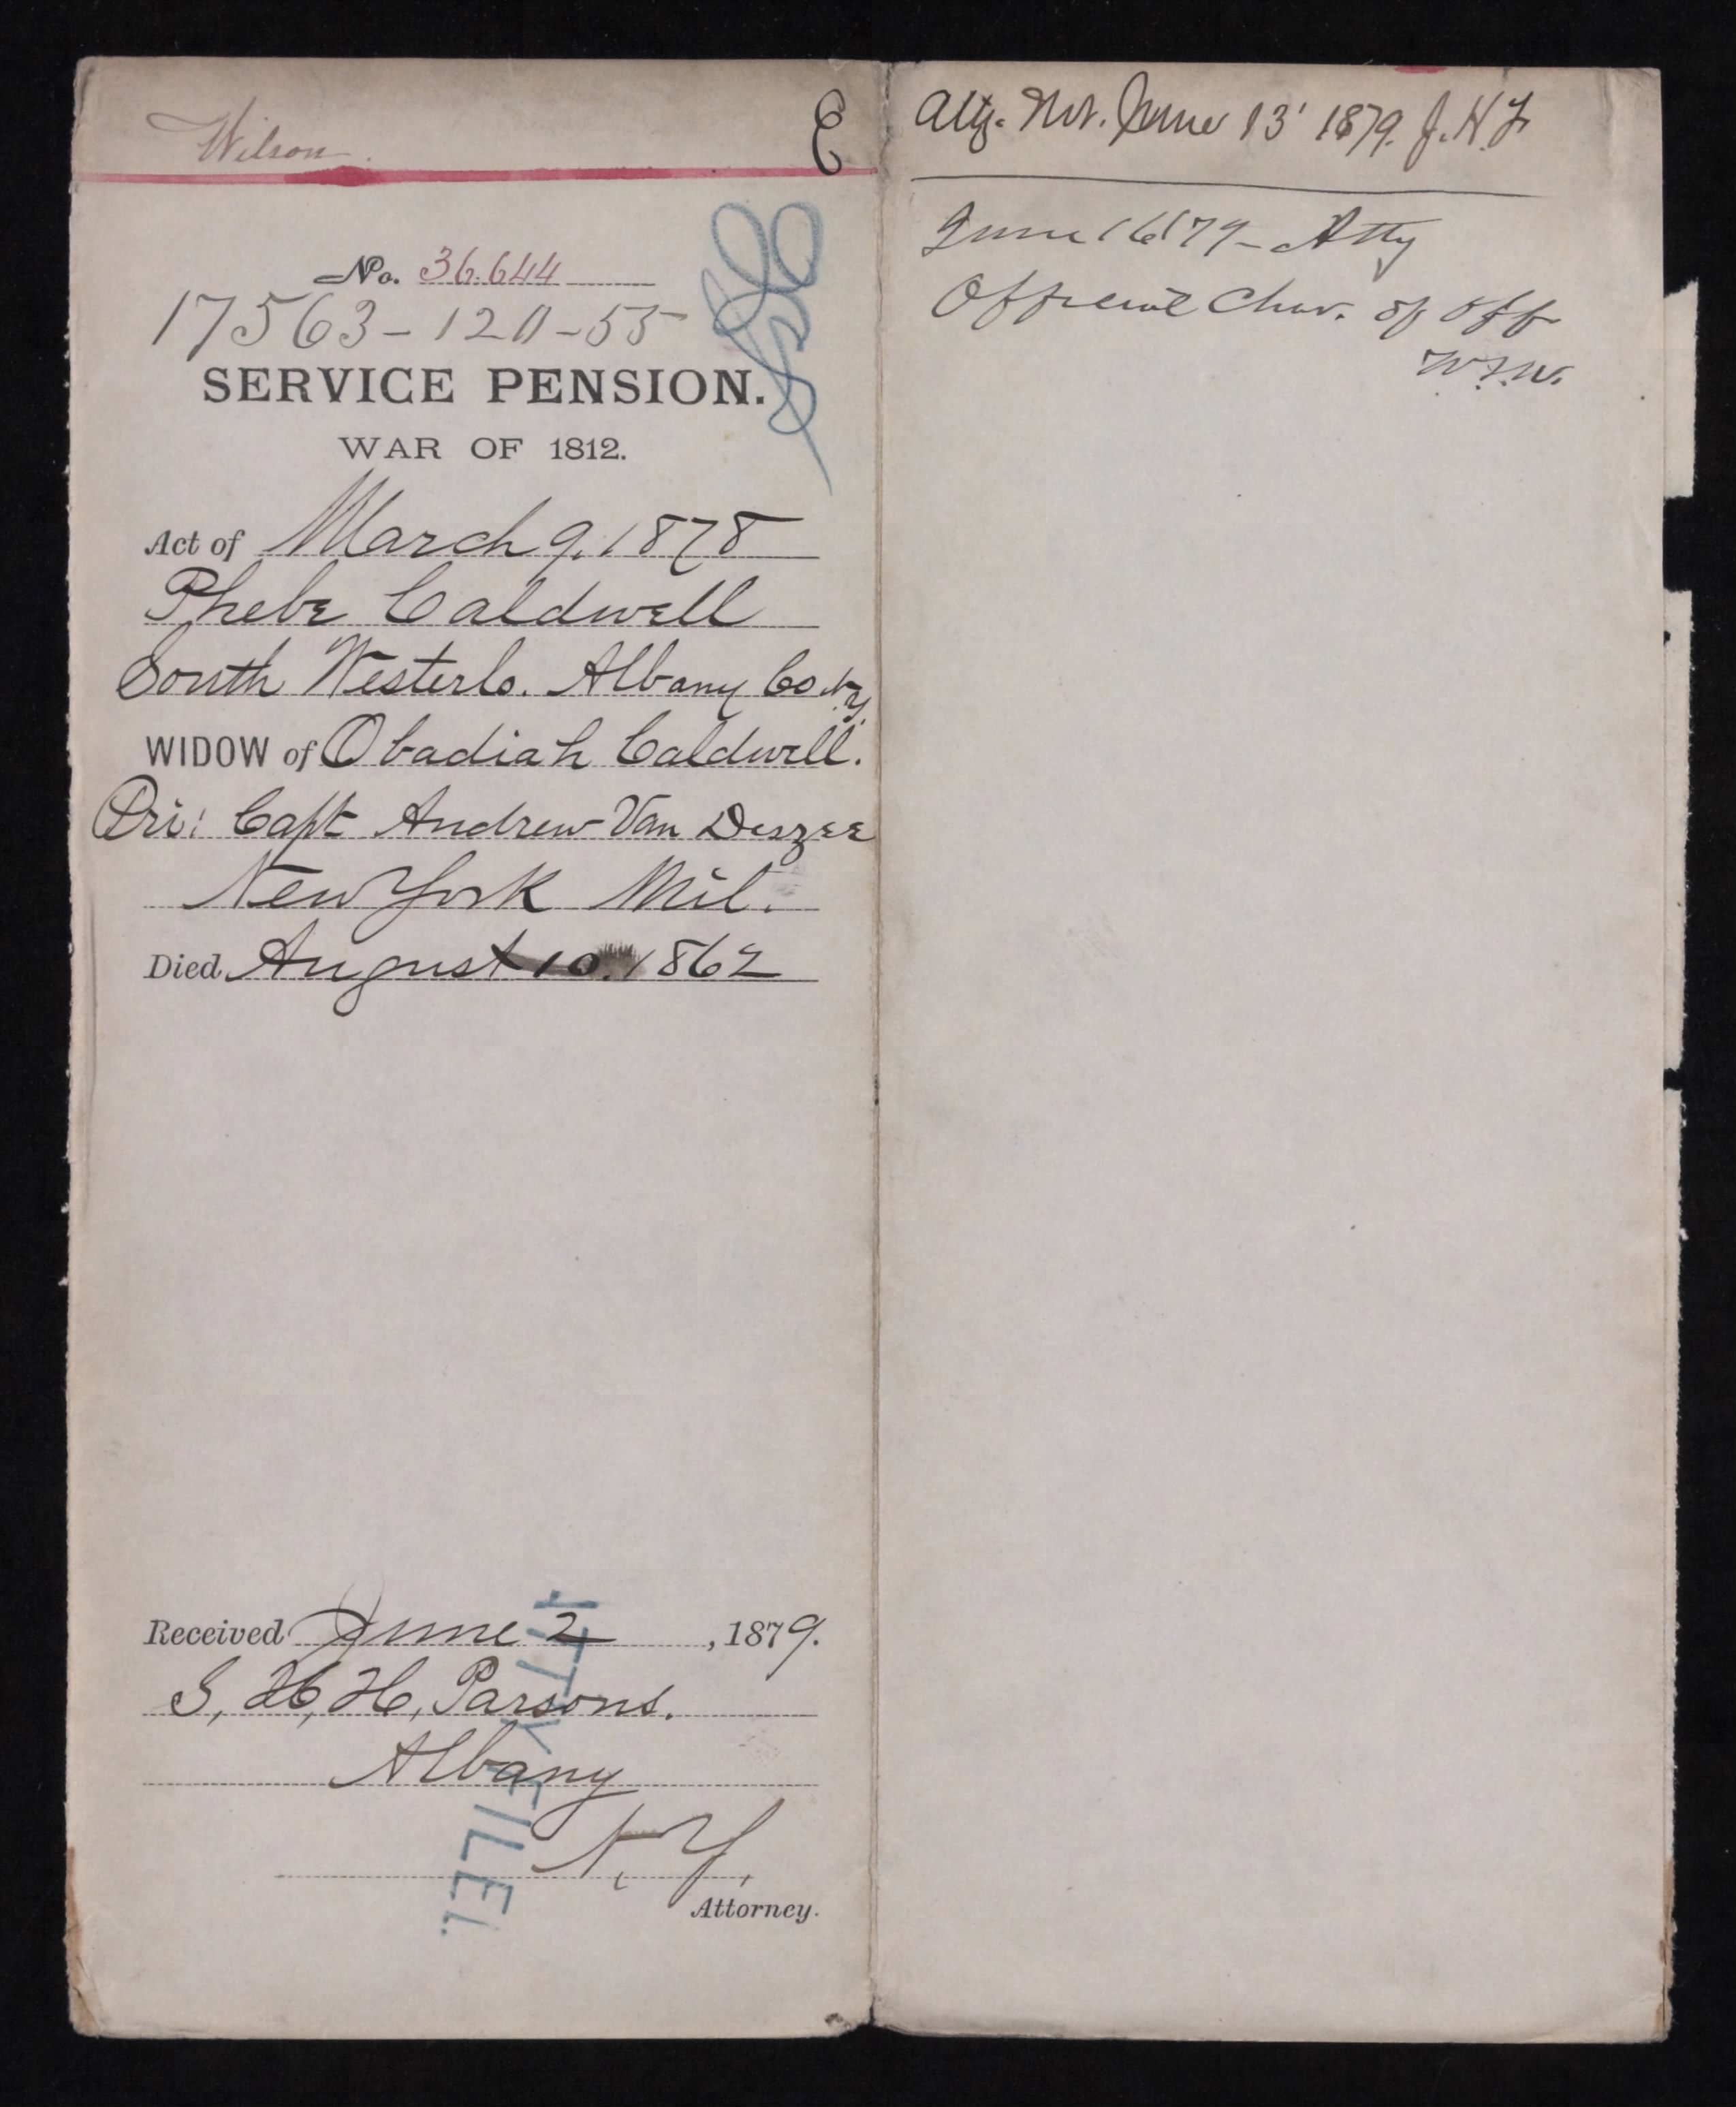 Wilson.
E
No. 36.644
17563-120-55
SERVICE PENSION.
WAR OF 1812.
Act of March 9, 1878
Phebe Caldwell
South Westerlo. Albany Co N.Y.
WIDOW of Obadiah Caldwell.
Pri: Capt Andrew Van Deszee
New York Mil.
Died August 10. 1862
Received June 2, 1879.
G, H, H, Parsons.
Albany
N.Y.
Attorney.
FILED
Atty. Not. June 13' 1879. J.H.
June 16 '79 - Atty
Official Char. of off